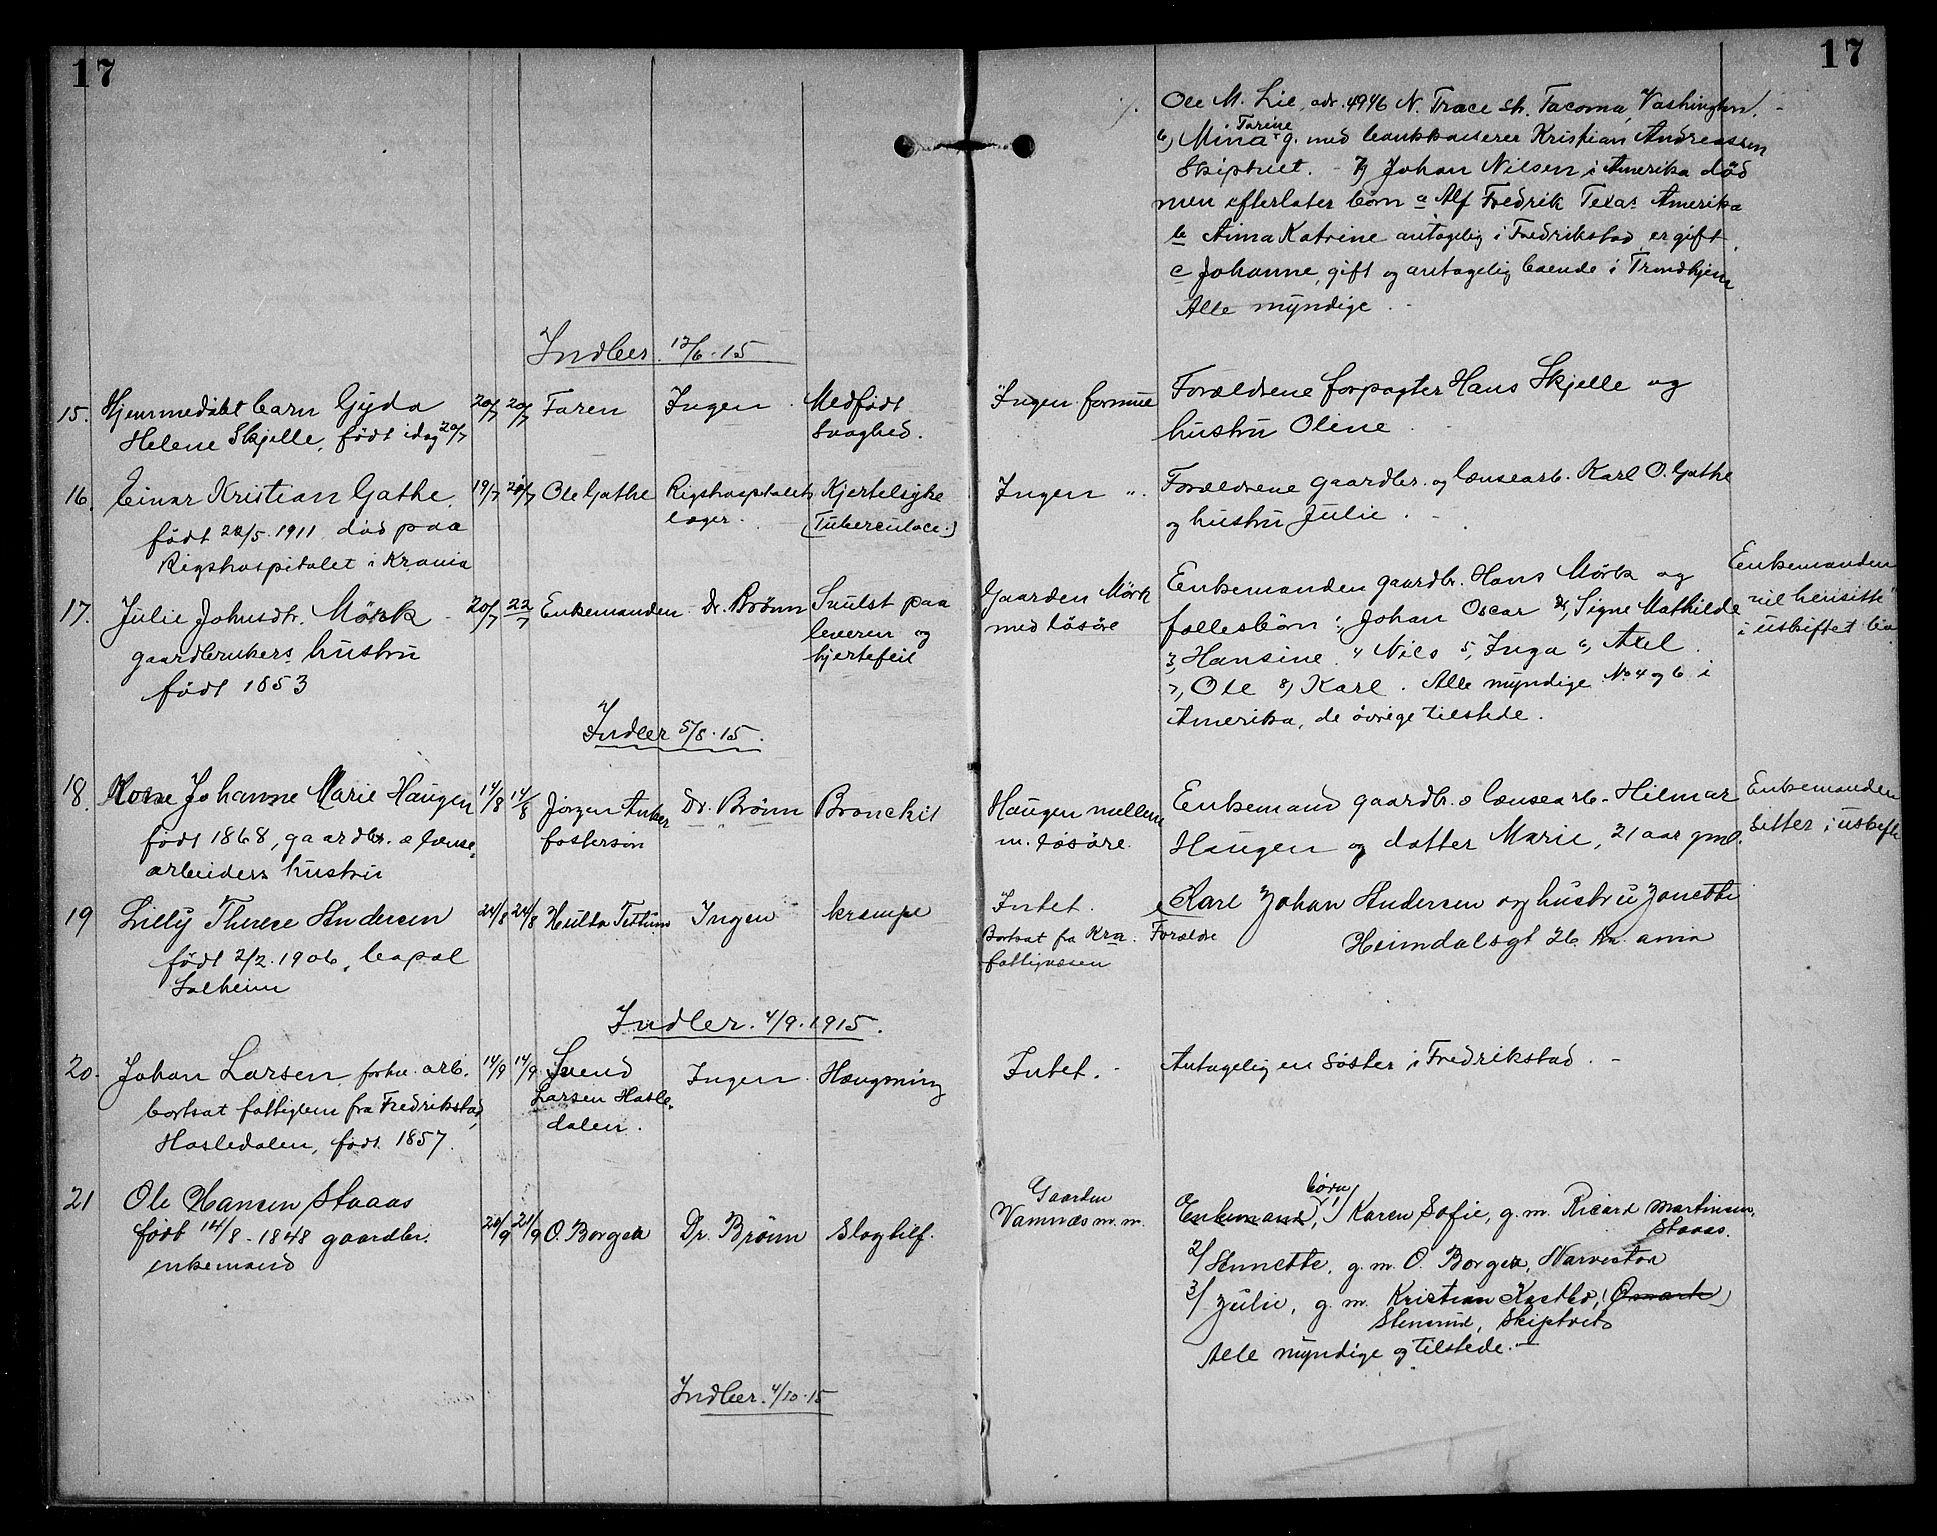 17
17
Ole M. Lie, adr. 4946 N. Trace str. Tacoma, Vashington.
Tarine
6) Mina g. med bankkaserer Kristian Andreassen
Skiptvet. - 7) Johan Nilsen i Amerika död
men efterlater börn a Alf Fredrik Texas Amerika
b Anna Katrine antagelig i Fredrikstad, er gift,
c Johanne, gift og antagelig boende i Trondhjem
Alle myndige.
Indber. 12/6.15
15. Hjemmedöbt barn Gyda
Helene Skjelle, född idag 20/7
20/7 20/7 Faren Ingen. Medfödt
Svaghed.
Ingen formue
Forældrene forpagter Hans Skjelle og
hustru Oline.
16. Einar Kristian Gathe,
födt 20/5.1911 död paa
Rigshospitalet i Krania
19/7 20/7 Ole Gathe Rigshospitalets
læger. Kjertelsyke
(Tuberculoce.)
Ingen ".
Forældrene gaardbr. og lænsearb. Karl O. Gathe
og hustru Julie.
17. Julie Johnsdtr. Mörk
gaardbrukers hustru
födt 1853
20/7 22/7 Enkemanden Dr. Brönn Svulst paa
leveren og
hjertefeil
Gaarden Mörk
med lösöre
Enkemanden gaardbr. Hans Mörk og
fællesbörn: 1, Johan Oscar 2, Signe Mathilde
3, Hansine. 4 Nils 5, Inga 6, Axel.
7, Ole 8) Karl. Alle myndige No 4 og 6 i
Amerika, de övrige tilstede.
Enkemanden
vil hensitte
i uskiftet bo
Indber 5/8.15.
18. Korne Johanne Marie Haugen
födt 1868, gaardbr. & lænse-
arbeiders hustru
14/8 14/8 Jörgen Anker
fostersön Dr. Brönn Bronchit
Haugen mellem
m. lösöre.
Enkemand gaardbr. & lænsearb. Hilmar
Haugen og datter Marie, 21 aar gml.
Enkemanden
sitter i uskifte
19 Lilly Therese Andersen
födt 2/2.1906, bopæl
Solheim
24/8 24/8 Hulda Tettum Ingen krampe
Intet.
Bortsat fra Kra.
fattigvæsen
Forældre
Karl Johan Andersen og hustru Janette
Heimdalsgt 26. Kr. ania
Indber. 4/9.1915.
20. Johan Larsen, forhv. arb.
bortsat fattiglem fra Fredrikstad,
Hasledalen, födt 1857.
14/9 14/9 Svend
Larsen Hasle-
dalen. Ingen. Hængning
Intet.
Antagelig en söster i Fredrikstad.
21 Ole Hansen Staaas
födt 14/8-1848 gaardbr.
enkemand
20/9 21/9 O. Borgen Dr. Brönn Slagtilf.
Gaarden
Vamnæs m. m.
börn
Enkemand, 1/ Karen Sofie, g. m. Ricard Martinsen,
Staaas.
2/ Annette, g. m. O. Borgen, Narvestad
3/ Julie, g. m. Kristian Kastbo, (Omark)
Stensrud, Skiptvet
Alle myndige og tilstede.
Indber. 4/10.15